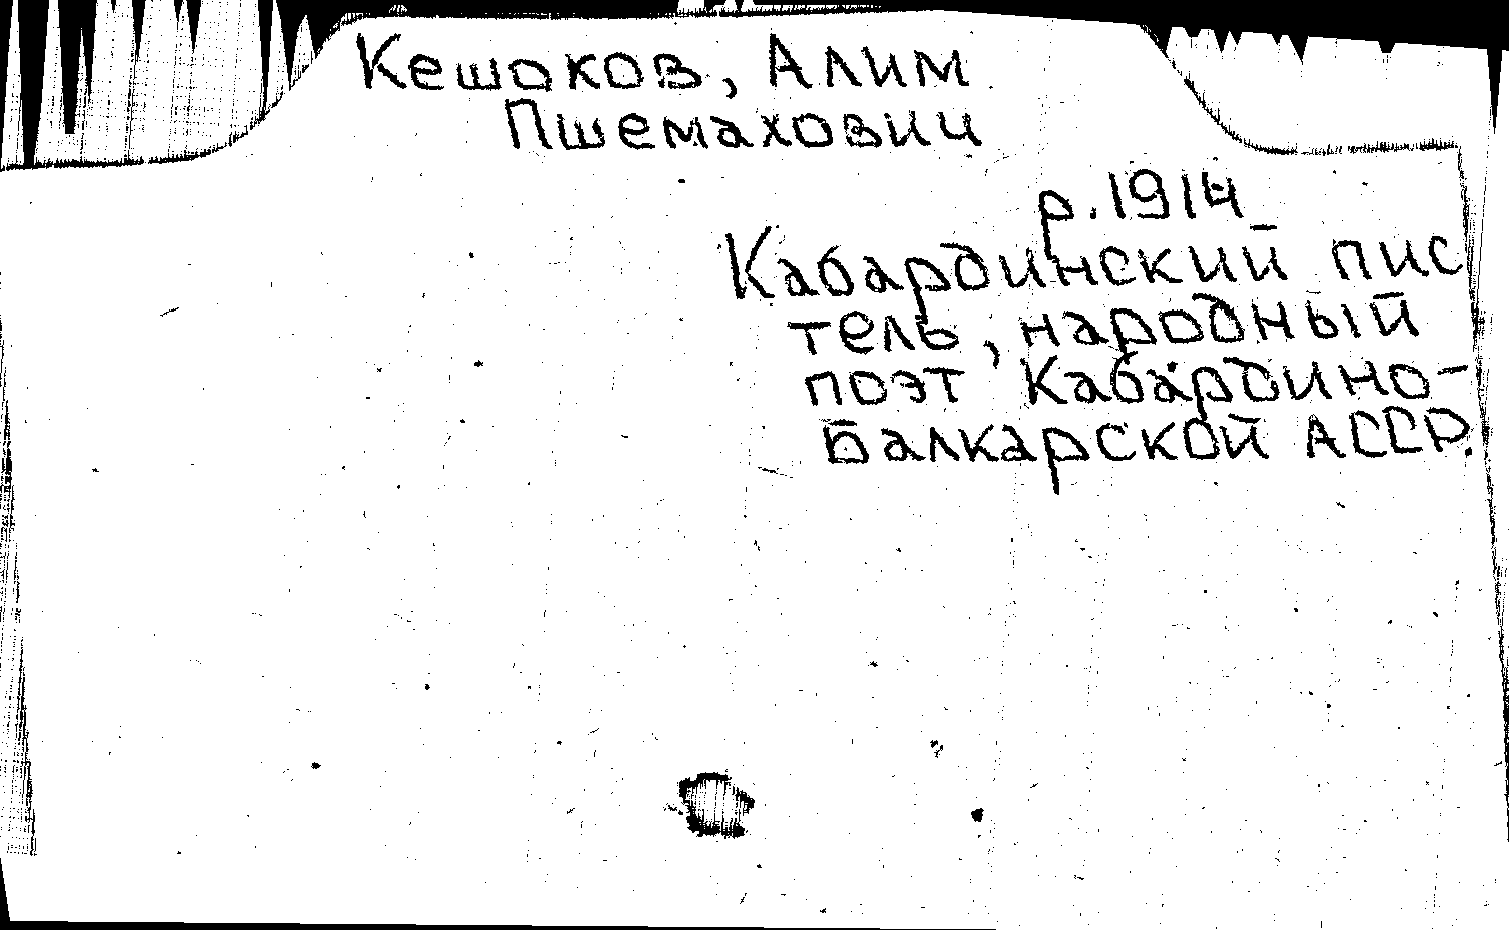 Кешоков, Алим
Пшемахович
р. 1914
Кабардинский пис
тель, народный
поэт Кабардино-
Балкарской АССР.